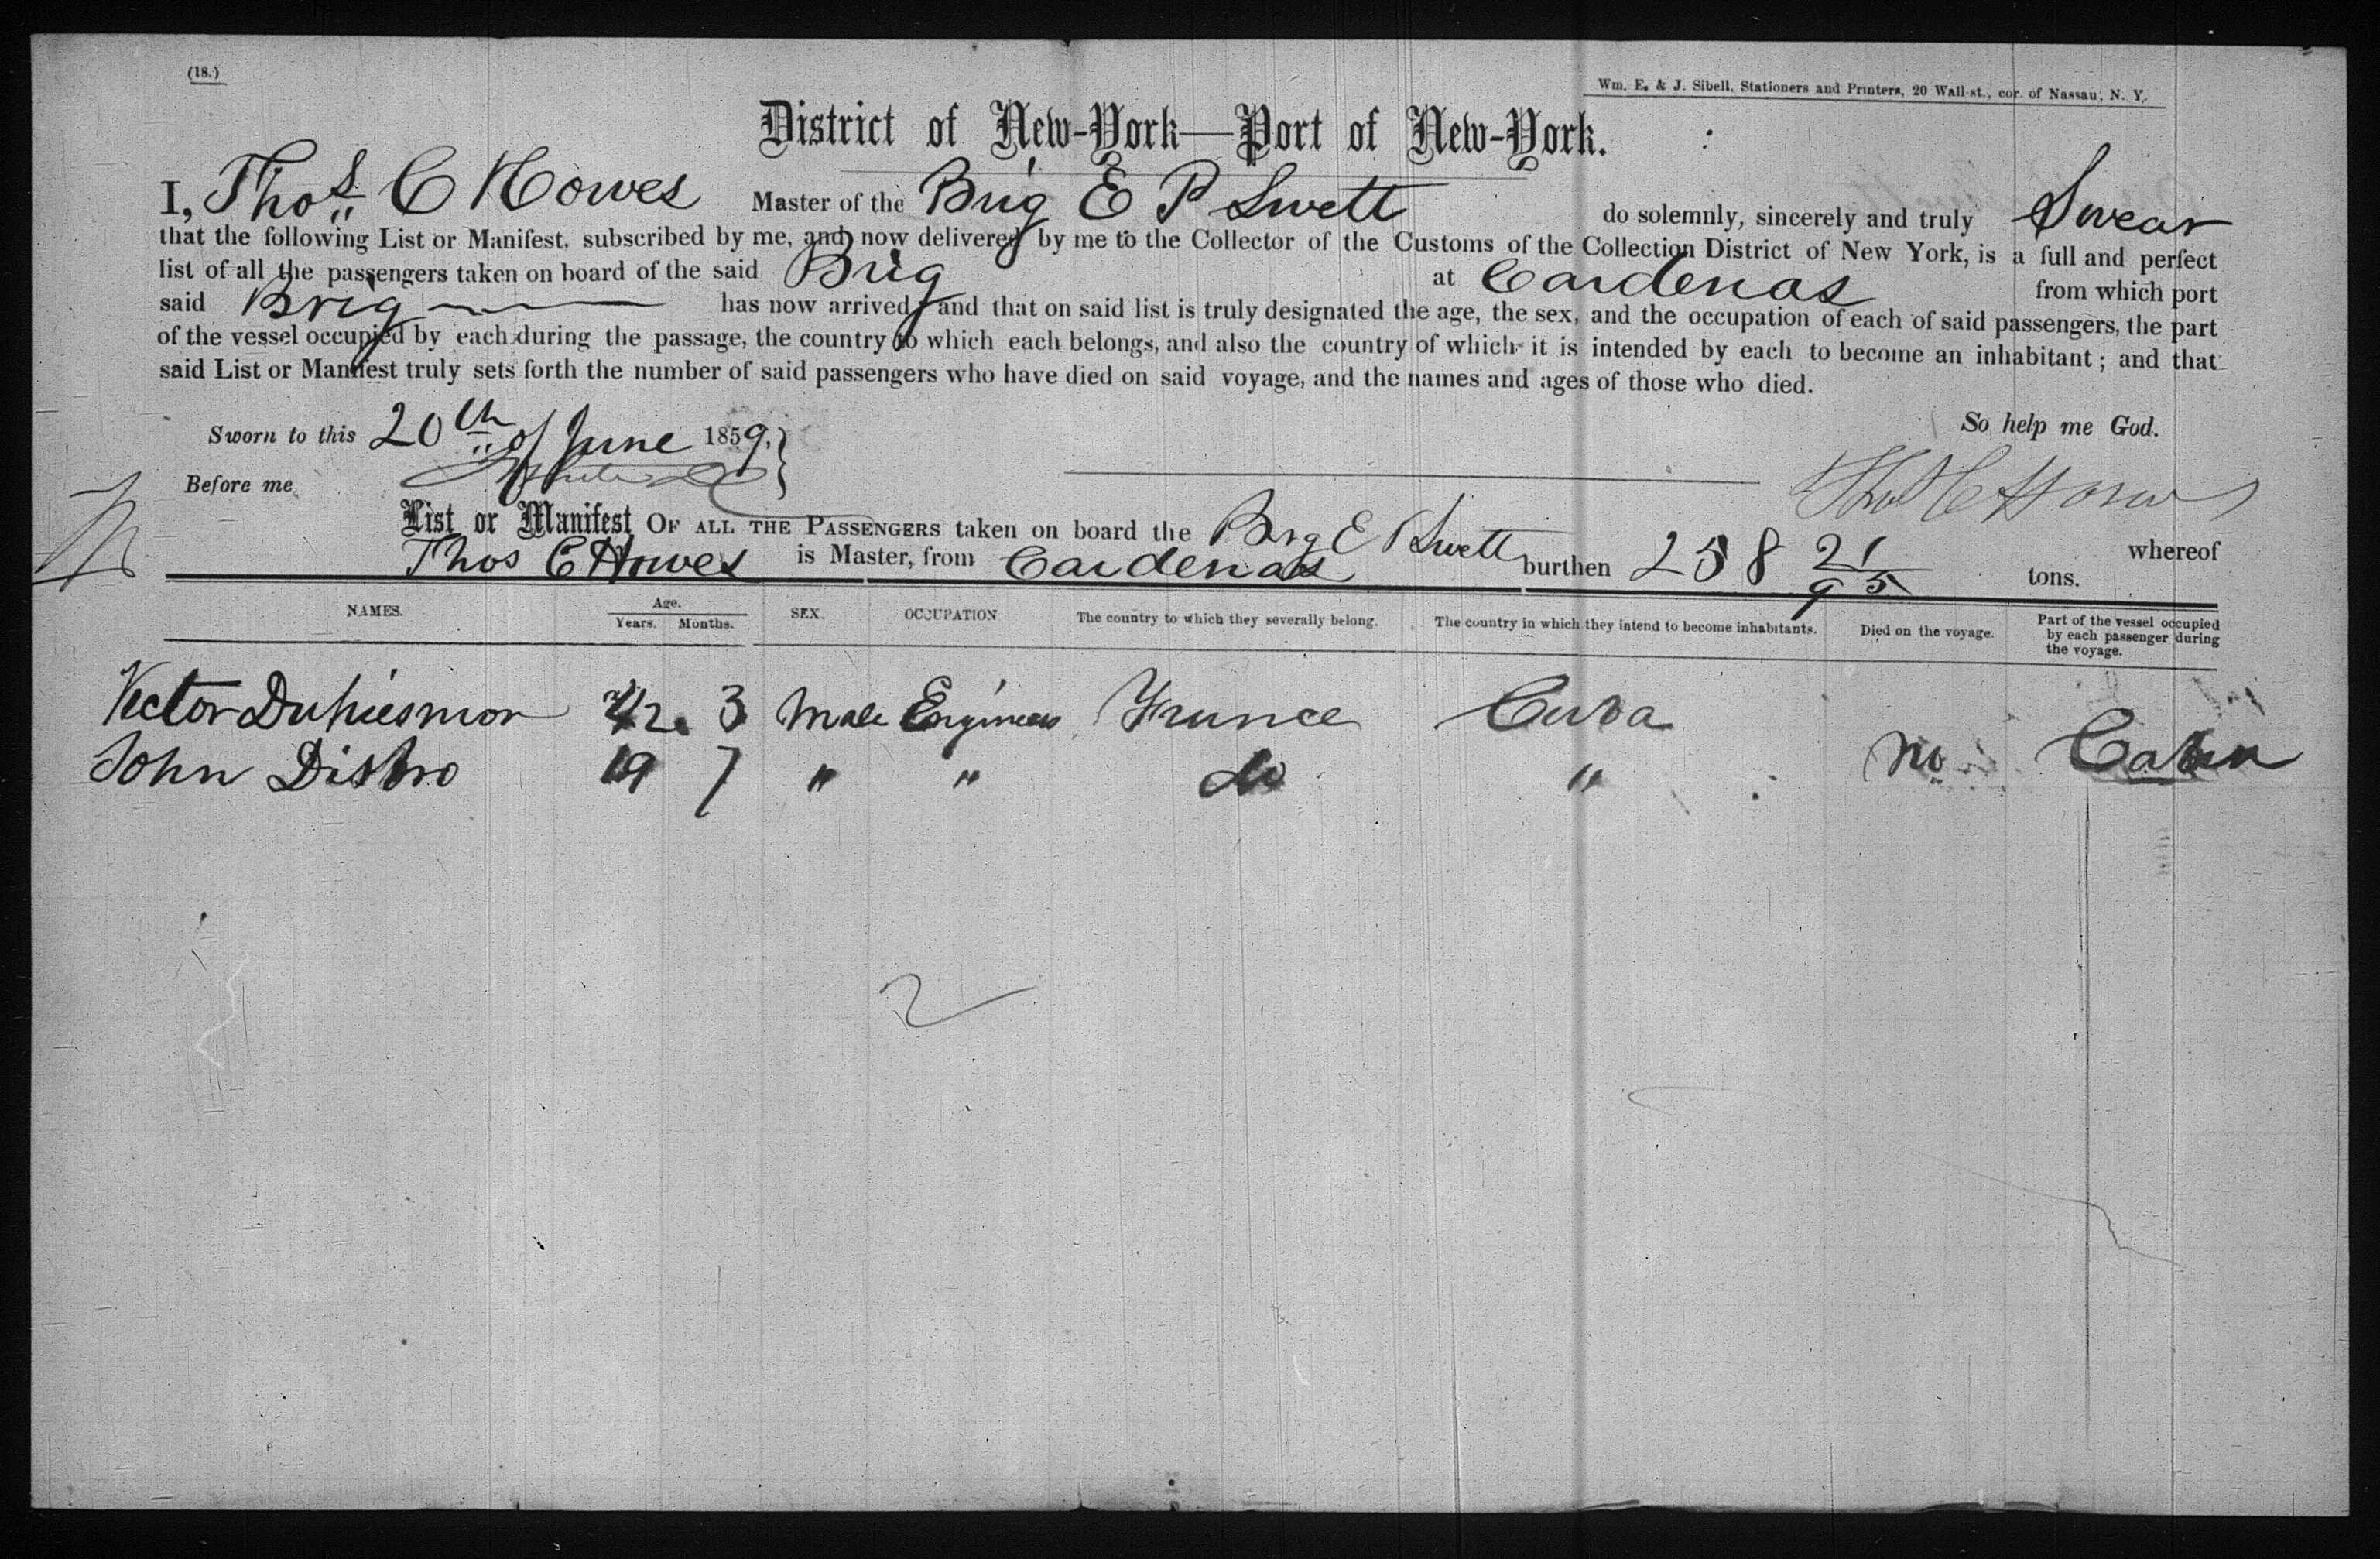 (18.)
Wm. E. & J. Sibell, Stationers and Printers, 20 Wall-st., cor. of Nassau, N. Y.
District of New-York—Port of New-York.
I, Thos C Howes Master of the Brig E P Swett do solemnly, sincerely and truly Swear
that the following List or Manifest, subscribed by me, and now delivered by me to the Collector of the Customs of the Collection District of New York, is a full and perfect
list of all the passengers taken on board of the said Brig at Cardenas from which port
said Brig has now arrived; and that on said list is truly designated the age, the sex, and the occupation of each of said passengers, the part
of the vessel occupied by each during the passage, the country to which each belongs, and also the country of which it is intended by each to become an inhabitant; and that
said List or Manifest truly sets forth the number of said passengers who have died on said voyage, and the names and ages of those who died.
So help me God.
Sworn to this 20th of June 1859,
Before me
Thos C Howes
List or Manifest OF ALL THE PASSENGERS taken on board the Brig E P Swett whereof
Thos C Howes is Master, from Cardenas burthen 258 21/95 tons.
NAMES. Age. Years. Months. SEX. OCCUPATION The country to which they severally belong. The country in which they intend to become inhabitants. Died on the voyage. Part of the vessel occupied by each passenger during the voyage.
Vector 42 3 Male Engineers France Cuba
John Disbro 19 7 " " do " No Cabin
2